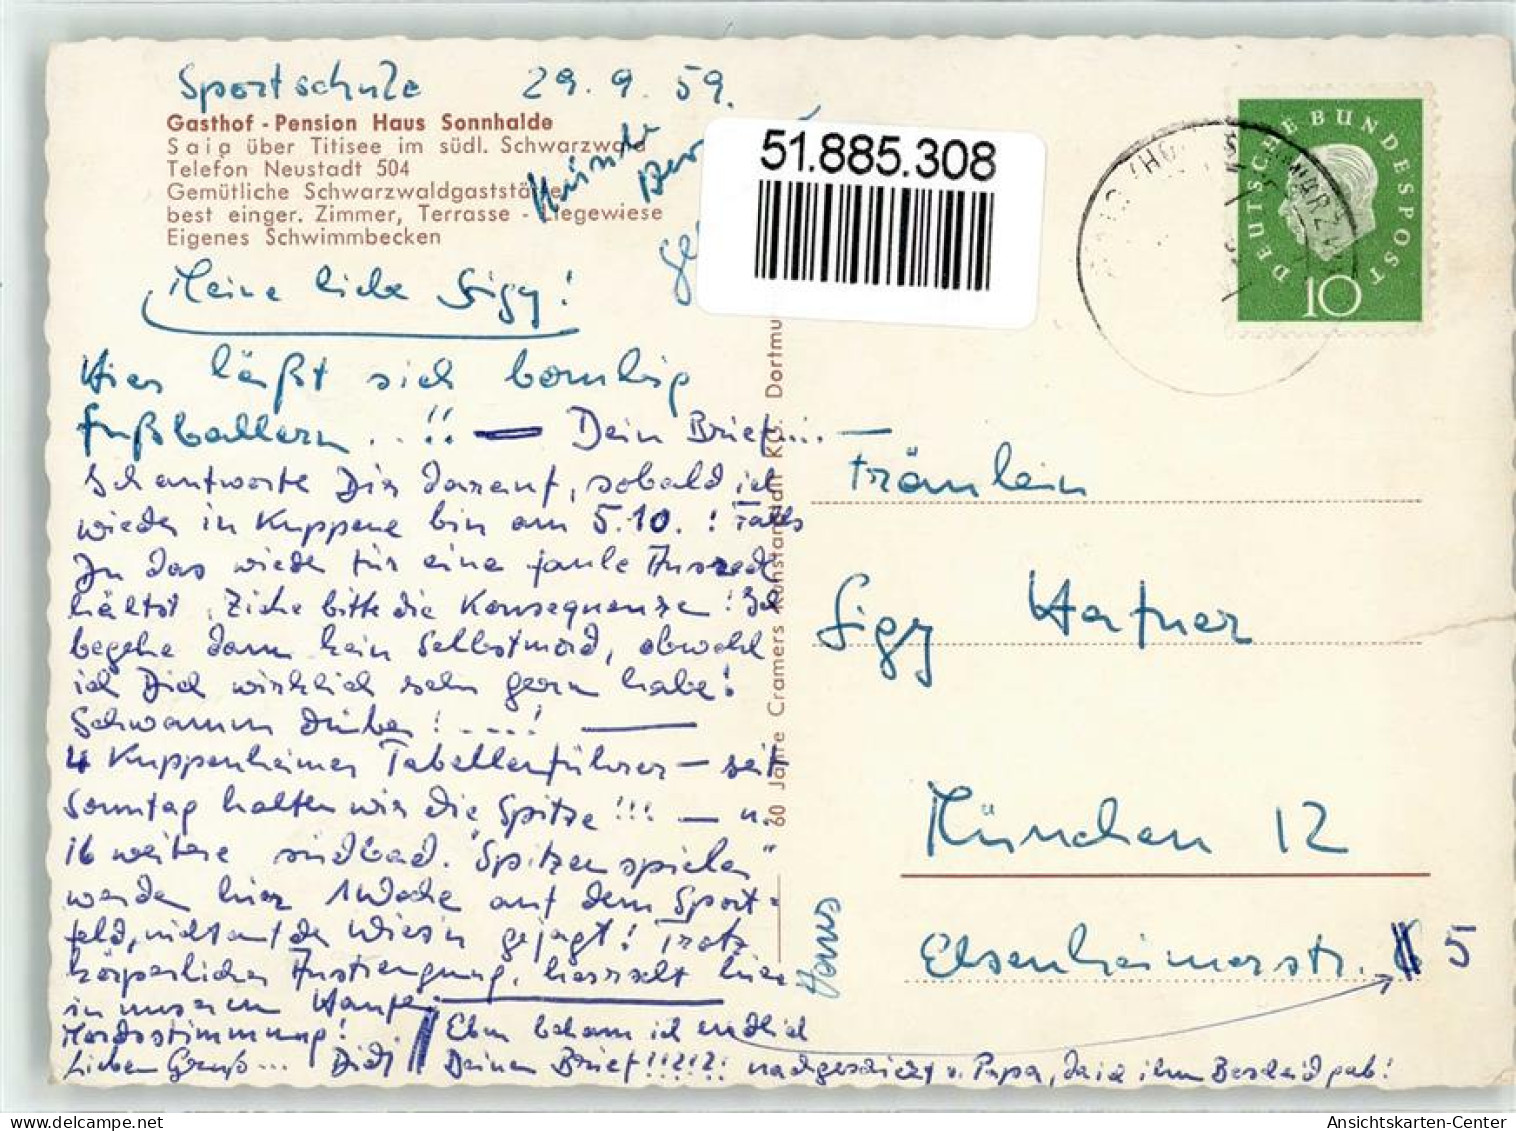 Sportschule 29.9.59.
Gasthof - Pension Haus Sonnhalde
Saig über Titisee im südl. Schwarzwald
Telefon Neustadt 504
Gemütliche Schwarzwaldgaststätte
best einger. Zimmer, Terrasse - Liegewiese
Eigenes Schwimmbecken
51.885.308
DEUTSCHE BUNDESPOST
10
Meine liebe Siggy!
Hier läßt sich
fußballern . . !! — Dein Brief...
Ich antworte Dir darauf, sobald ich
wieder in Kuppenh. bin am 5.10. ! Falls
Du das wieder für eine faule Ausrede
hältst, ziehe bitte die Konsequenzen! Ich
begehe dann kein Selbstmord, obwohl
ich Dich wirklich sehr gern habe!
Schwamm drüber! ....!
4 Kuppenheimer Tabellenführer – seit
Sonntag halten wir die Spitze!!! — u.
16 weitere südbad. "Spitzenspieler"
werden hier 1 Woche auf dem Sport-
feld, nicht auf der Wies'n gejagt! Trotz
körperlicher Anstrengung, herrscht hier
in unserem Haufen
Mordsstimmung!
Lieben Gruß... Didi
Eben bekam ich endlich
Deinen Brief!!?!?! nachgeschickt v. Papa, da ich ihm Bescheid gab!
60 Jahre Cramers Kunstanstalt KG. Dortmu
Fräulein
Siggy Hafner
München 12
Elsenheimerstr. 5
Ansichtskarten-Center
delcampe.net